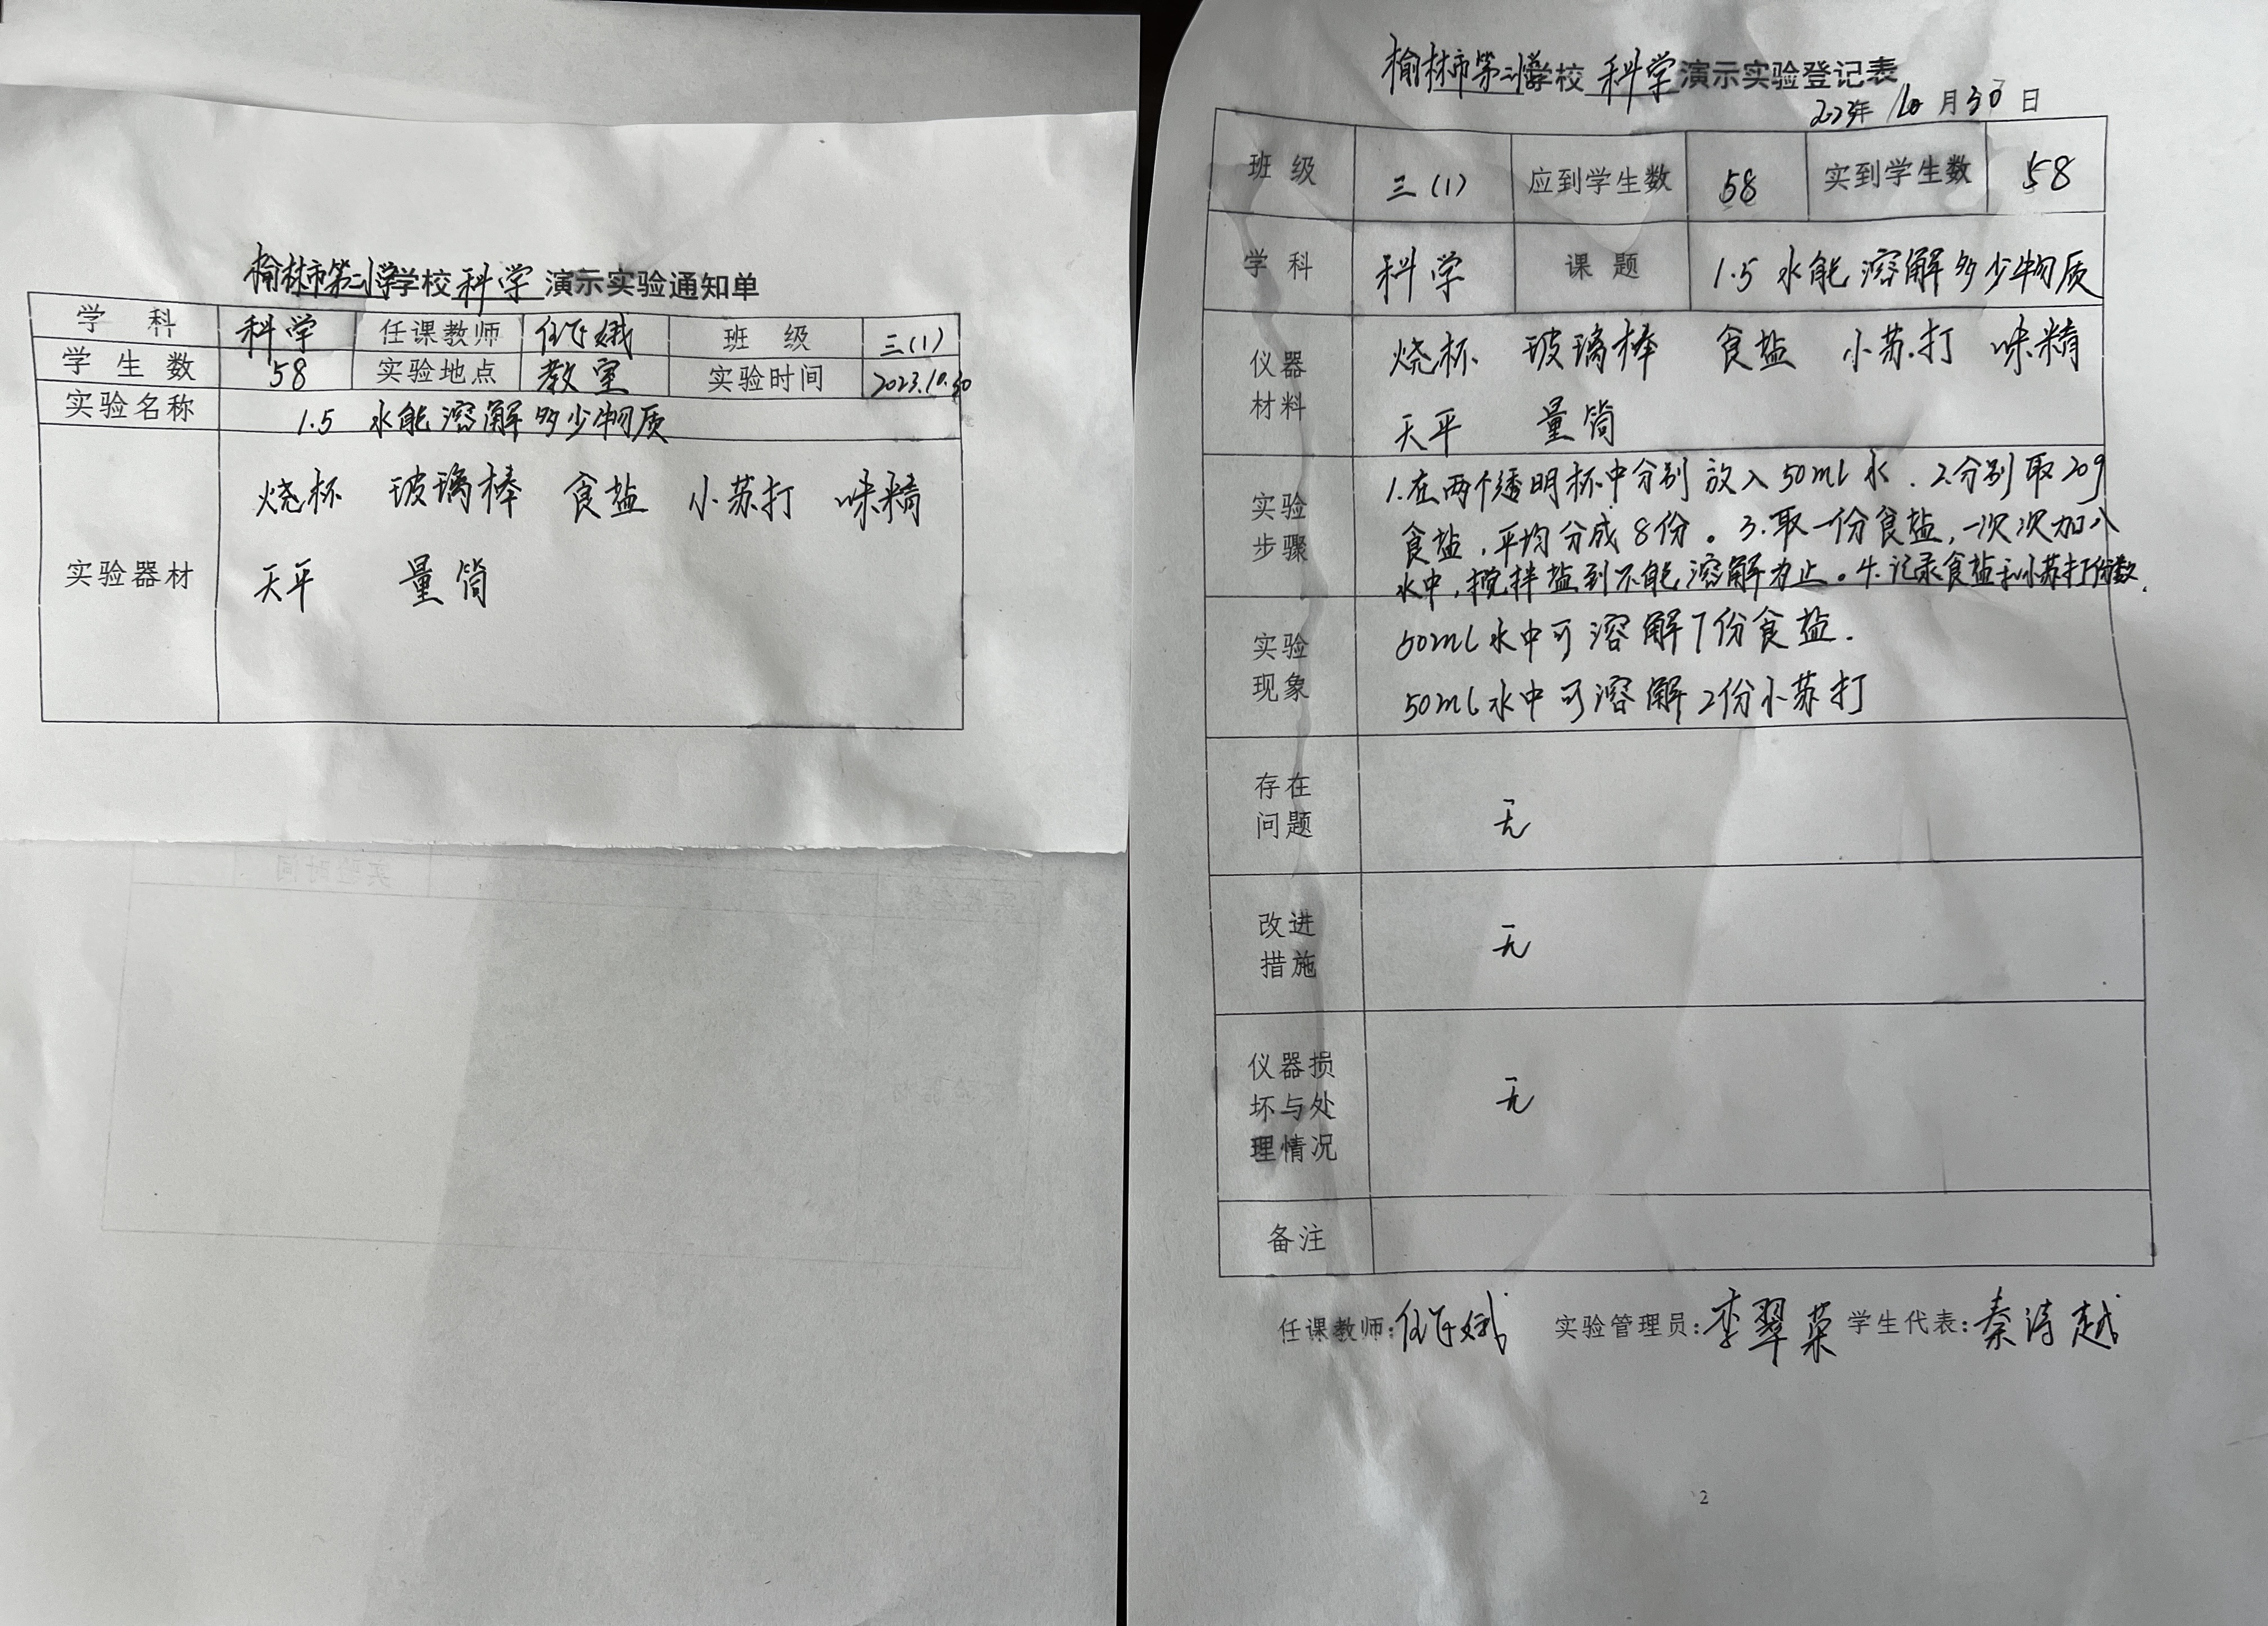 榆林市第二小学学校科学演示实验通知单
学 科 科学 任课教师 任飞娥 班 级 三(1)
学生数 58 实验地点 教室 实验时间 2023.10.30
实验名称 1.5 水能溶解多少物质
实验器材 烧杯 玻璃棒 食盐 小苏打 味精
天平 量筒
实验时间
榆林市第二小学学校 科学 演示实验登记表
2023年 10月30日
班 级 三(1) 应到学生数 58 实到学生数 58
学 科 科学 课 题 1.5 水能溶解多少物质
仪器材料 烧杯 玻璃棒 食盐 小苏打 味精
天平 量筒
实验步骤 1.在两个透明杯中分别放入50ml水.2.分别取20g
食盐,平均分成8份。3.取一份食盐,一次次加入
水中,搅拌盐到不能溶解为止。4.记录食盐和小苏打份数.
实验现象 50ml水中可溶解7份食盐.
50ml水中可溶解2份小苏打
存在问题 无
改进措施 无
仪器损坏与处理情况 无
备注
任课教师:任飞娥 实验管理员:李翠荣 学生代表:秦诗越
2